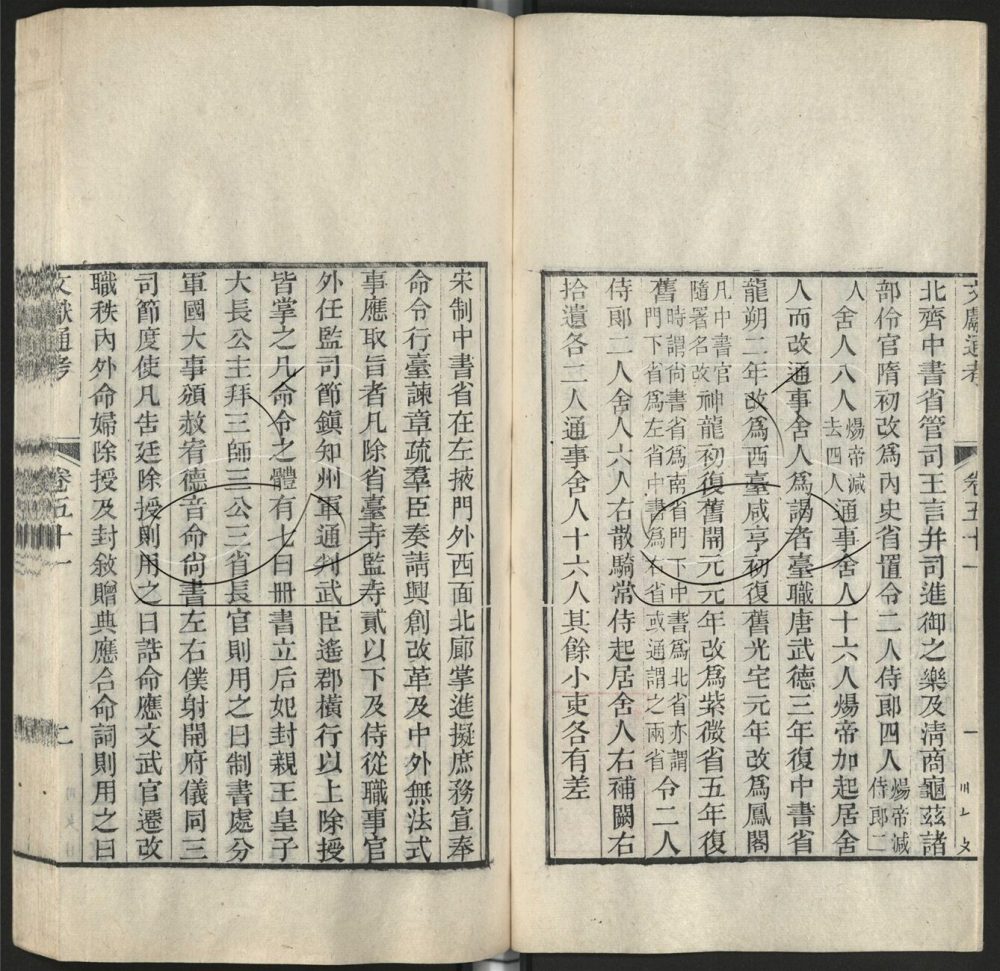 文獻通考 卷五十一 一
北齊中書省管司王言并司進御之樂及清商龜茲諸
部伶官隋初改爲內史省置令二人侍郎四人煬帝減侍郎二
人舍人八人煬帝減去四人通事舍人十六人煬帝加起居舍
人而改通事舍人爲謁者臺職唐武德三年復中書省
龍朔二年改爲西臺咸亨初復舊光宅元年改爲鳳閣
凡中書官隨署名改神龍初復舊開元元年改爲紫微省五年復
舊時謂尚書省爲南省門下中書爲北省亦謂門下省爲左省中書爲右省或通謂之兩省令二人
侍郎二人舍人六人右散騎常侍起居舍人右補闕右
拾遺各二人通事舍人十六人其餘小吏各有差
宋制中書省在左掖門外西面北廊掌進擬庶務宣奉
命令行臺諫章疏羣臣奏請興創改革及中外無法式
事應取旨者凡除省臺寺監寺貳以下及侍從職事官
外任監司節鎮知州軍通判武臣遙郡橫行以上除授
皆掌之凡命令之體有七曰冊書立后妃封親王皇子
大長公主拜三師三公三省長官則用之曰制書處分
軍國大事頒赦宥德音命尚書左右僕射開府儀同三
司節度使凡告廷除授則用之曰誥命應文武官遷改
職秩內外命婦除授及封敘贈典應合命詞則用之曰
文獻通考 卷五十一 二